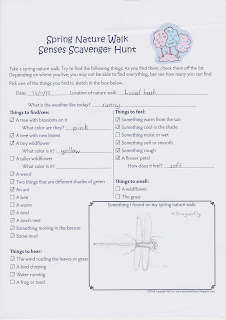 Spring Nature Walk
Senses Scavenger Hunt
Take a spring nature walk. Try to find the following things. As you find them, check them off the list.
Depending on where you live, you may not be able to find everything, but see how many you can find.
Pick one of the things you find to sketch in the box below.
Date Location of nature walk local bush
What is the weather like today? sunny
Things to find/see:
A tree with blossoms on it
What color are they? pink
A tree with new leaves
A tiny wildflower
What color is it? yellow
A taller wildflower
What color is it?
A weed
Two things that are different shades of green
An ant
A bee
A worm
A bird
A bird's nest
Something moving in the breeze
Some mud
Things to hear:
The wind rustling the leaves or grass
A bird chirping
Water running
A frog or toad
Things to feel:
Something warm from the sun
Something cool in the shade
Something moist or wet
Something soft or smooth
Something rough
A flower petal
How does it feel? soft
Things to smell:
A wildflower
The grass
Something I found on my spring nature walk:
A Dragonfly